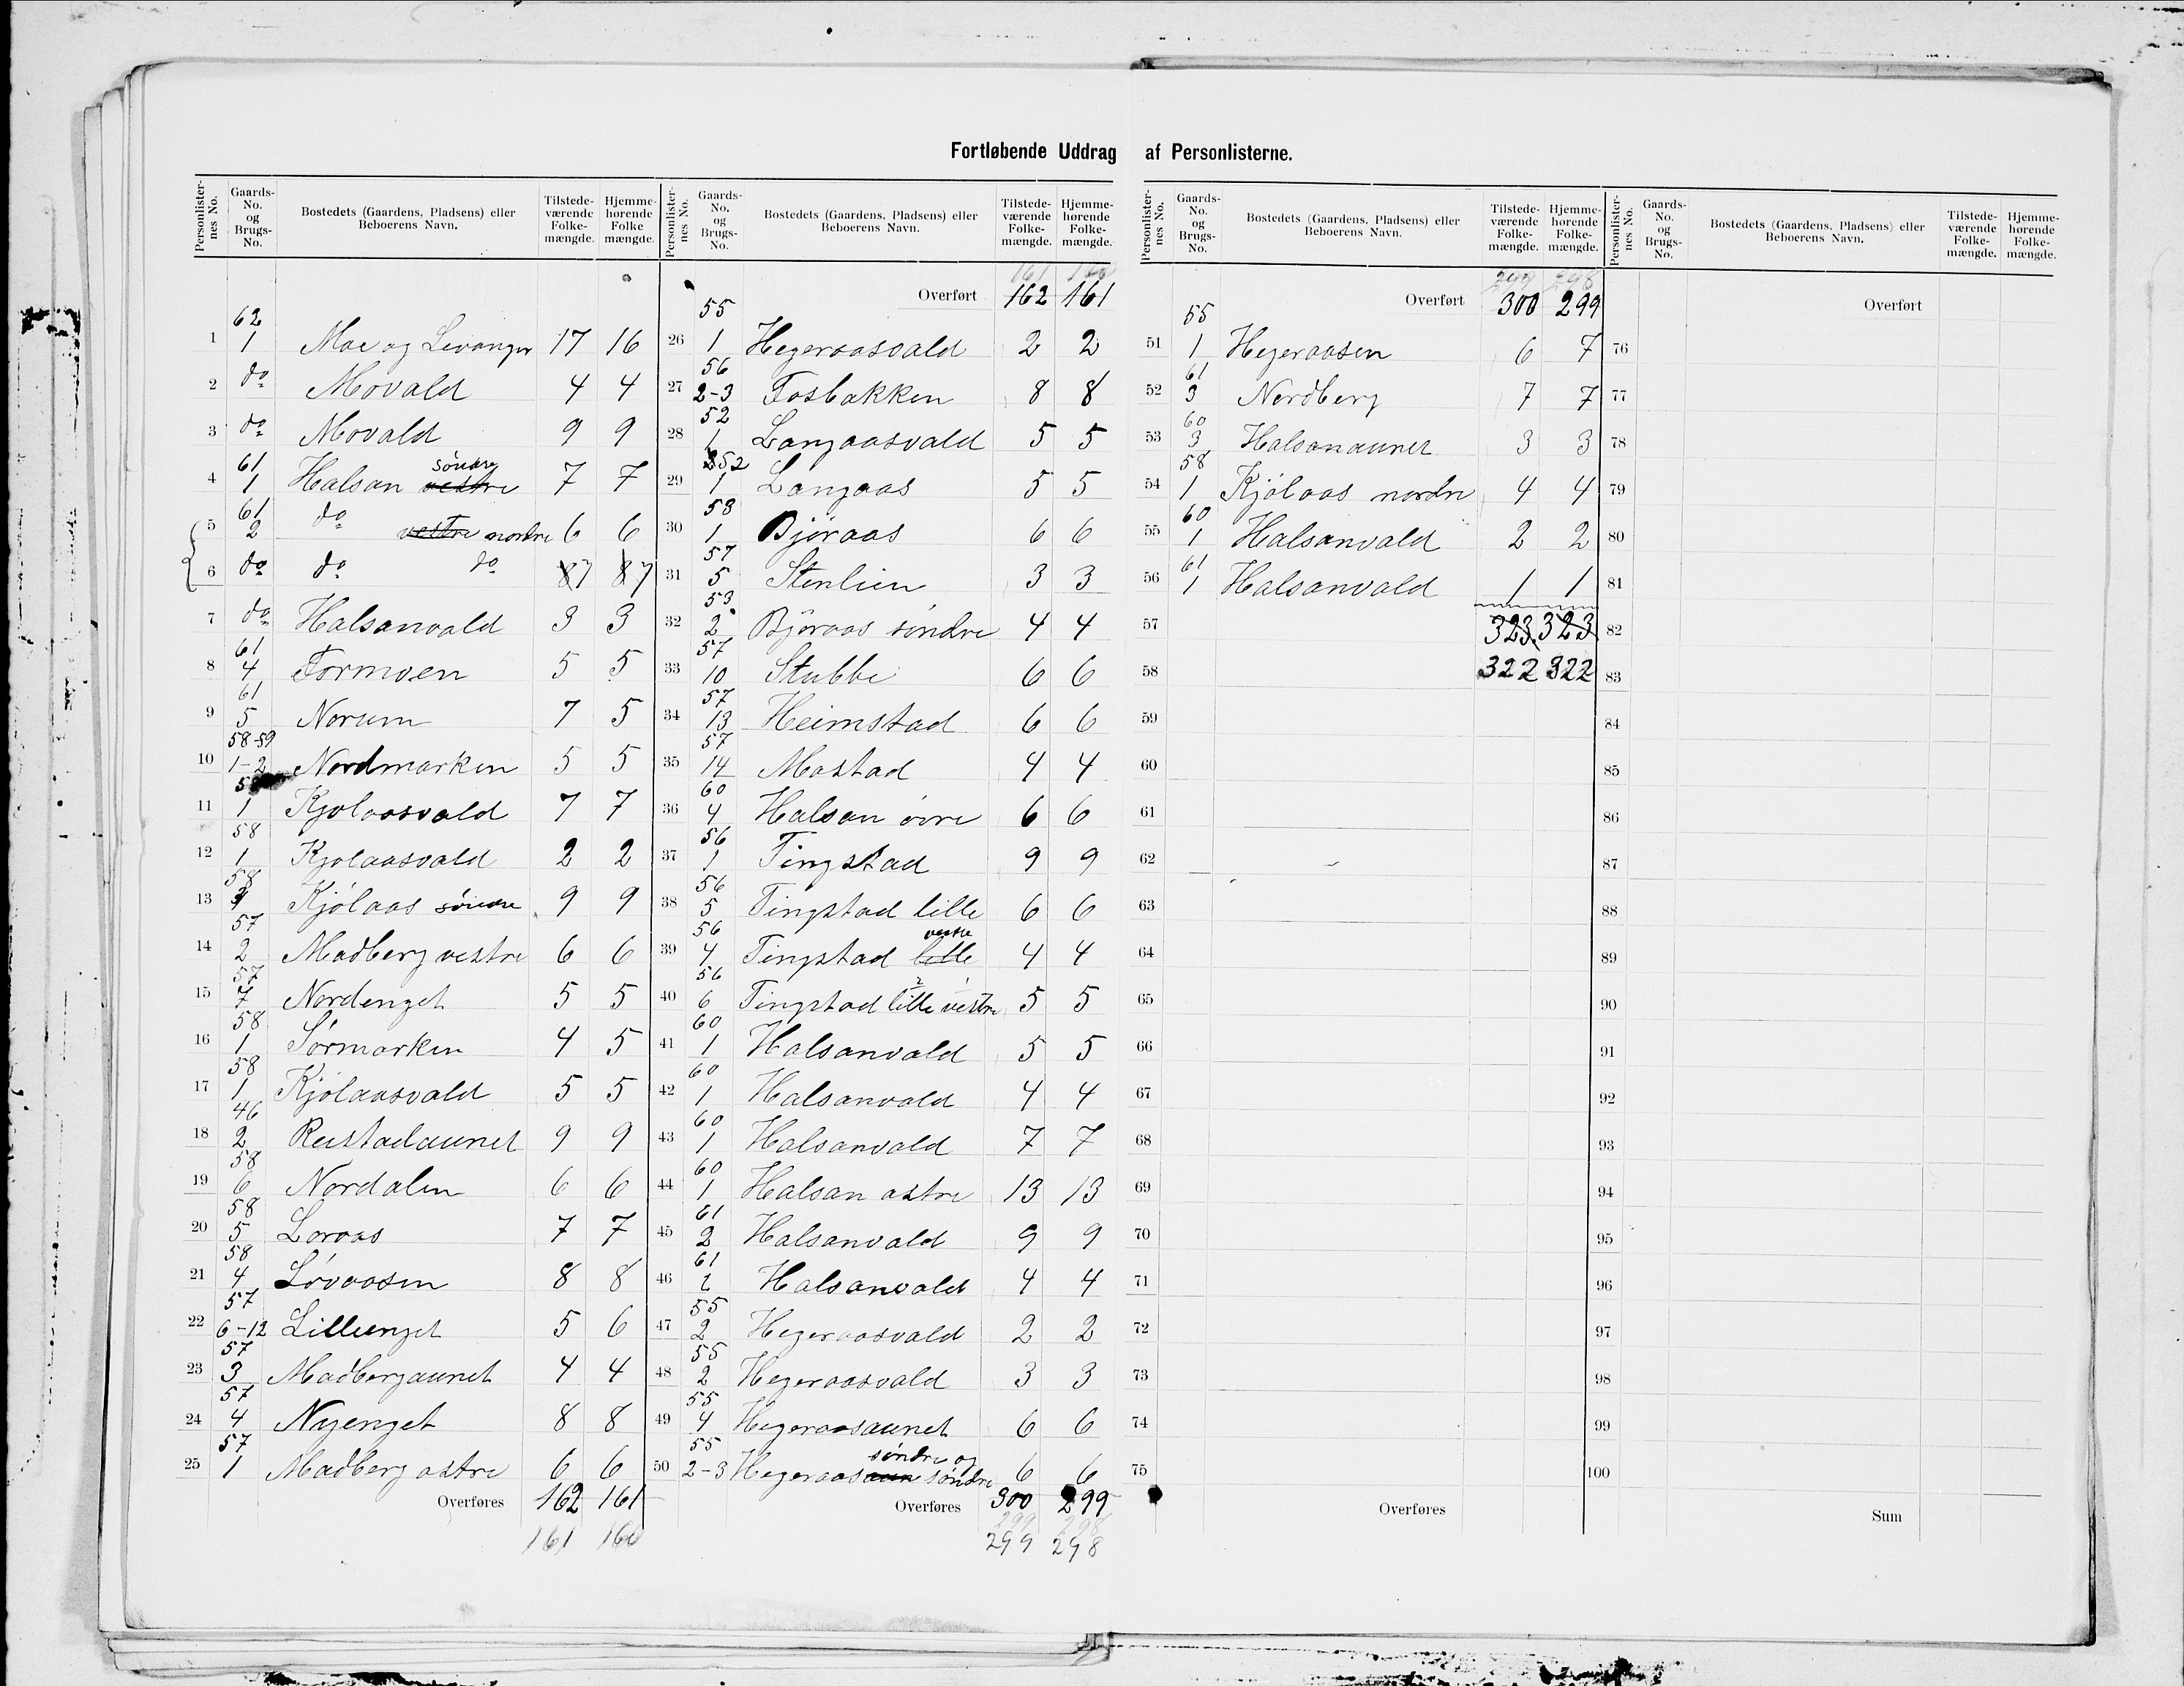 Fortløbende Uddrag af Personlisterne.
Personlister-nes No. | Gaards-No. og Brugs-No. | Bostedets (Gaardens, Pladsens) eller Beboerens Navn. | Tilstede-værende Folke-mængde. | Hjemme-hørende Folke mængde.
1 62/1 Moe og Levanger 17 16
2 do Movald 4 4
3 do Movald 9 9
4 61/1 Halsan vestre søndre 7 7
5 61/2 do vestre nordre 6 6
6 do do do 87 87
7 do Halsanvald 3 3
8 61/4 Formoen 5 5
9 61/5 Norum 7 5
10 58-59/1-2 Nordmarken 5 5
11 58/1 Kjølaasvald 7 7
12 58/1 Kjølaasvald 2 2
13 58 Kjølaas søndre 9 9
14 57/2 Madberg vestre 6 6
15 57/7 Nordenget 5 5
16 58/1 Sørmarken 4 5
17 58/1 Kjølaasvald 5 5
18 46/2 Reistadaunet 9 9
19 58/6 Nordalen 6 6
20 58/5 Loraas 7 7
21 58/4 Løvaasen 8 8
22 57/6-12 Lilleenget 5 6
23 57/3 Madbergaunet 4 4
24 57/4 Nyenget 8 8
25 57/1 Madberg østre 6 6
Overføres 162 161
161 160
Personlister-nes No. | Gaards-No. og Brugs-No. | Bostedets (Gaardens, Pladsens) eller Beboerens Navn. | Tilstede-værende Folke-mængde. | Hjemme-hørende Folke-mængde.
161 160
Overført 162 161
26 55/1 Hegeraasvald 2 2
27 56/2-3 Fosbakken 8 8
28 52/1 Langaasvald 5 5
29 52/1 Langaas 5 5
30 53/1 Bjøraas 6 6
31 57/5 Stenlien 3 3
32 53/2 Bjøraas søndre 4 4
33 57/10 Stubbe 6 6
34 57/13 Heimstad 6 6
35 57/14 Mostad 4 4
36 60/4 Halsan øvre 6 6
37 56/1 Tingstad 9 9
38 56/5 Tingstad lille 6 6
39 56/4 Tingstad lille vestre 4 4
40 56/6 Tingstad lille vestre 5 5
41 60/1 Halsanvald 5 5
42 60/1 Halsanvald 4 4
43 60/1 Halsanvald 7 7
44 60/1 Halsan østre 13 13
45 61/2 Halsanvald 9 9
46 61/2 Halsanvald 4 4
47 55/2 Hegeraasvald 2 2
48 55/2 Hegeraasvald 3 3
49 55/4 Hegeraasaunet 6 6
50 55/2-3 Hegeraasaun søndre og søndre 6 6
Overføres 300 299
299 298
299 298
Personlister-nes No. | Gaards-No. og Brugs-No. | Bostedets (Gaardens, Pladsens) eller Beboerens Navn. | Tilstede-værende Folke-mængde. | Hjemme-hørende Folke-mængde.
299 298
Overført 300 299
51 55/1 Hegeraasen 6 7
52 61/3 Nordberg 7 7
53 60/3 Halsanaunet 3 3
54 58/1 Kjølaas nordre 4 4
55 60/1 Halsanvald 2 2
56 61/1 Halsanvald 1 1
57 323 323
58 322 322
59
60
61
62
63
64
65
66
67
68
69
70
71
72
73
74
75
Overføres
Personlister-nes No. | Gaards-No. og Brugs-No. | Bostedets (Gaardens, Pladsens) eller Beboerens Navn. | Tilstede-værende Folke-mængde. | Hjemme-hørende Folke-mængde.
Overført
76
77
78
79
80
81
82
83
84
85
86
87
88
89
90
91
92
93
94
95
96
97
98
99
100
Sum